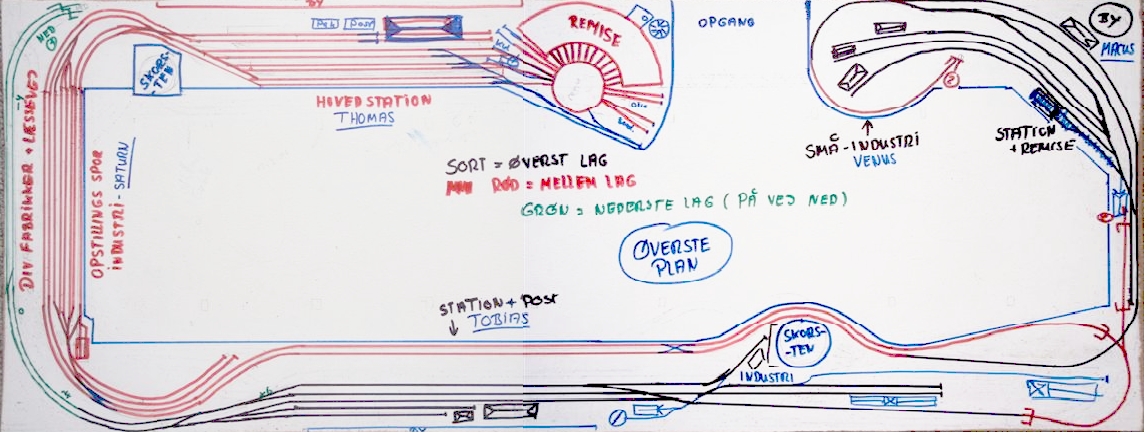 BY
NED
Pak
Post
REMISE
OPGANG
BY
MARUS
SKORS-
TEN
HOVEDSTATION
THOMAS
2
SMÅ-INDUSTRI
VENUS
STATION
+ REMISE
SORT = ØVERST LAG
RØD = MELLEM LAG
GRØN = NEDERSTE LAG (PÅ VEJ NED)
ØVERSTE
PLAN
DIV FABRIKKER + LÆSSEVEJ
OPSTILLINGS SPOR
INDUSTRI - SATURN
STATION + POST
TOBIAS
SKORS-
TEN
INDUSTRI